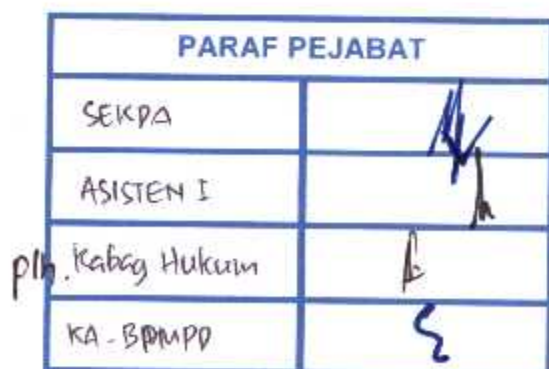 PARAF PEJABAT
SEKDA
ASISTEN I
plh. Kabag Hukum
KA-BPMPD